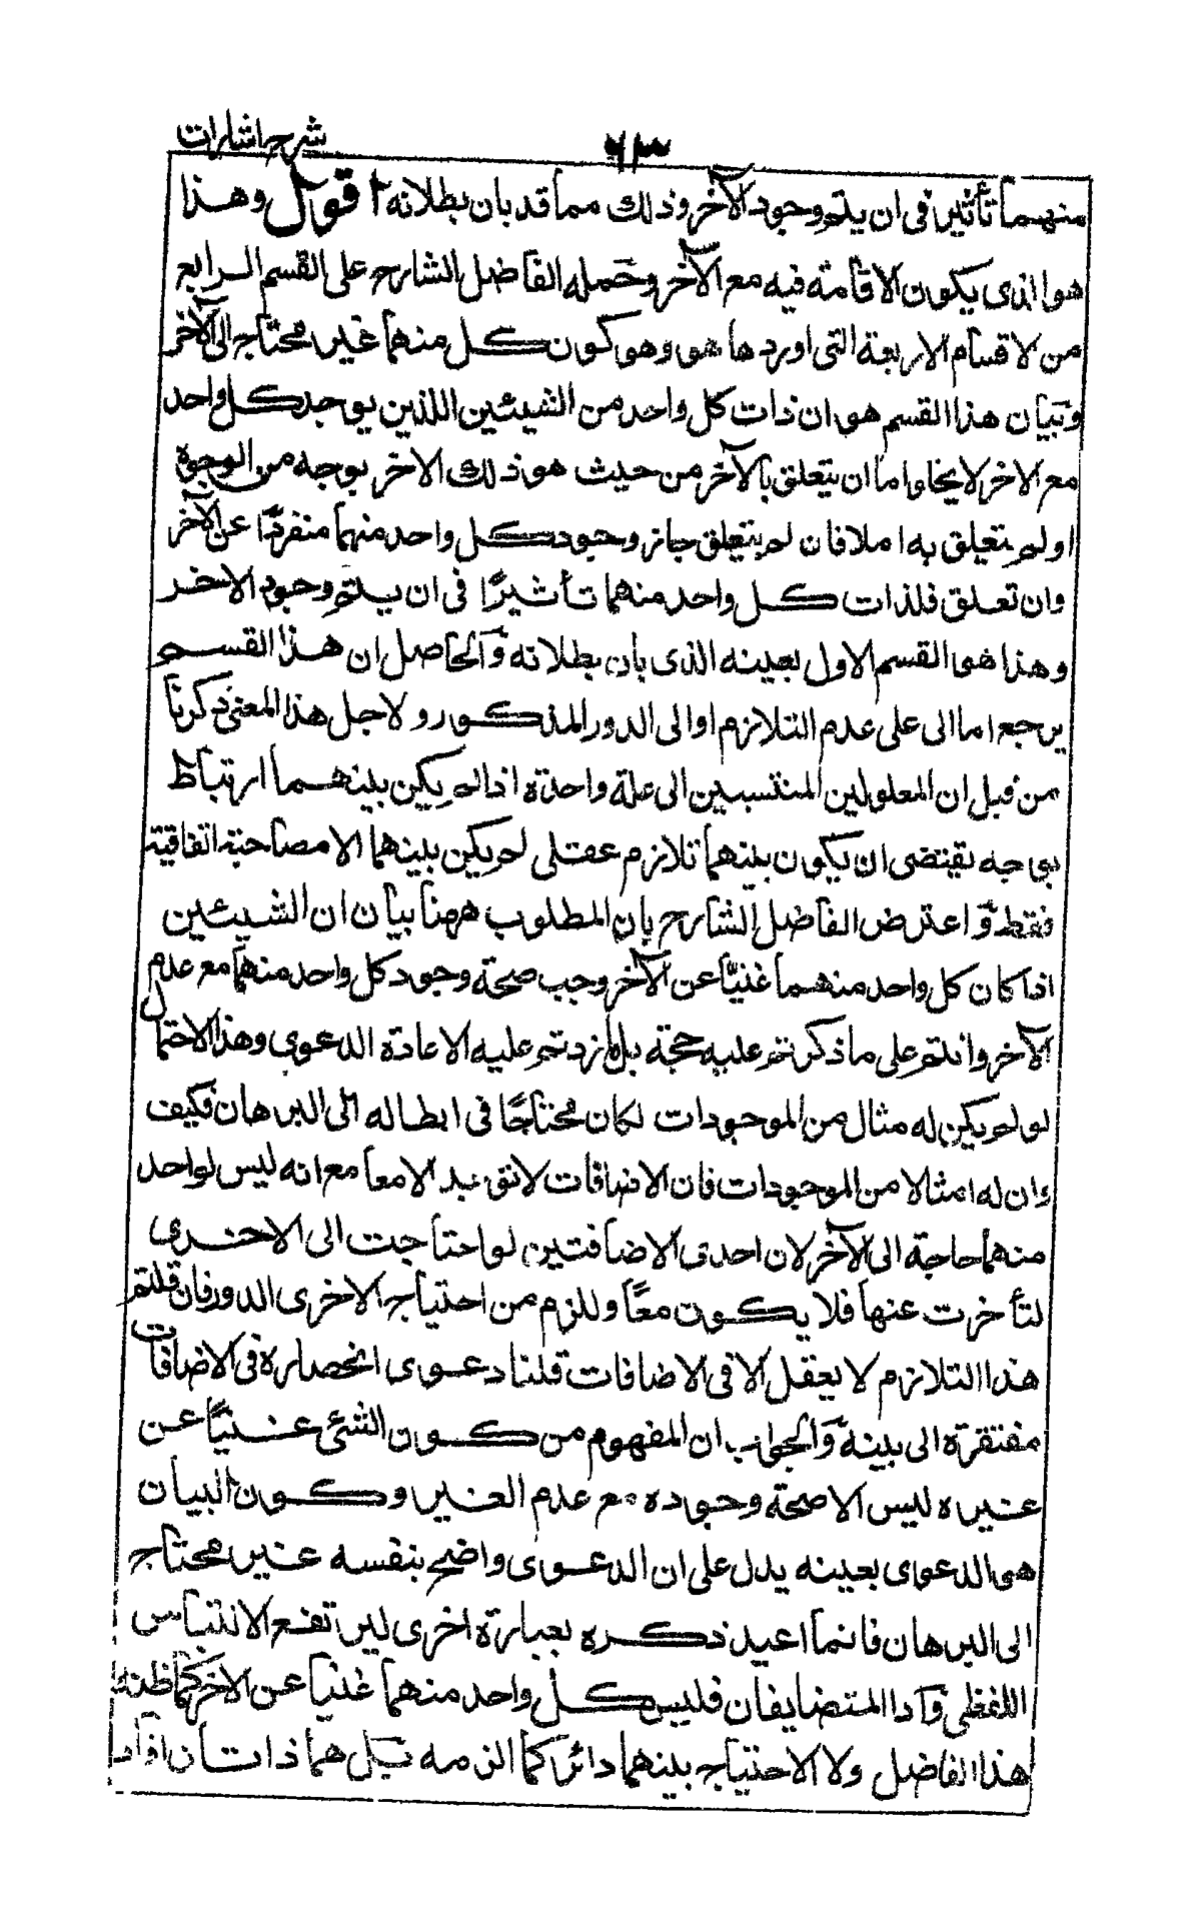 شرح اشارات
٦٣
منهما تأثير في ان يتم وجود الآخر وذلك مما قد بان بطلانه اقول وهذا
هو الذى يكون الاقامة فيه مع الآخر وحمله الفاضل الشارح على القسم الرابع
من لاقسام الاربعة التى اوردها هو وهو كون كل منهما غير محتاج الى الآخر
وبيان هذا القسم هو ان ذات كل واحد من الشيئين اللذين يوجد كل واحد
مع الاخر لا يخلوا ما ان يتعلق بالآخر من حيث هو ذلك الاخر بوجه من الوجوه
او لم يتعلق به اصلا فان لم يتعلق جاز وجود كل واحد منهما منفردًا عن الآخر
وان تعلق فلذات كل واحد منهما تأثيرًا فى ان يتم وجود الاخر
وهذا هو القسم الاول بعينه الذى بان بطلانه وَالحاصل ان هذا القسم
يرجع اما الى على عدم التلازم او الى الدور المذكور ولاجل هذا المعنى ذكرنا
من قبل ان المعلولين المنتسبين الى علة واحدة اذا لم يكن بينهما ارتباط
بوجه يقتضى ان يكون بينهما تلازم عقلى لم يكن بينهما الا مصاحبة اتفاقية
فقط وَاعترض الفاضل الشارح بان المطلوب ههنا بيان ان الشيئين
اذا كان كل واحد منهما غنيًا عن الآخر وجب صحة وجود كل واحد منهما مع عدم
الآخر وانتم على ما ذكرتم عليه حجة بل ما زدتم عليه الا عادة الدعوى وهذا الاحتمال
لو لم يكن له مثال من الموجودات لكان محتاجًا فى ابطاله الى البرهان فكيف
وان له امثالا من الموجودات فان الاضافات لا توجد الا معا مع انه ليس لواحد
منهما حاجة الى الآخر لان احدى الاضافتين لو احتاجت الى الاخرى
لتأخرت عنها فلا يكون معًا وللزم من احتياج الاخرى الدور فان قلتم
هذا التلازم لا يعقل الا فى الاضافات قلنا دعوى انحصاره فى الاضافات
مفتقرة الى بينة وَالجواب ان المفهوم من كون الشئ غنيًا عن
غيره ليس الا صحة وجوده مع عدم الغير وكون البيان
هو الدعوى بعينه يدل على ان الدعوى واضح بنفسه غير محتاج
الى البرهان فانما اعيد ذكره بعبارة اخرى ليرتفع الالتباس
اللفظى وَاما المتضايفان فليس كل واحد منهما غنيا عن الآخر كما ظنه
هذا الفاضل ولا الاحتياج بينهما دائرا كما الزمه بل هما ذاتان افاد